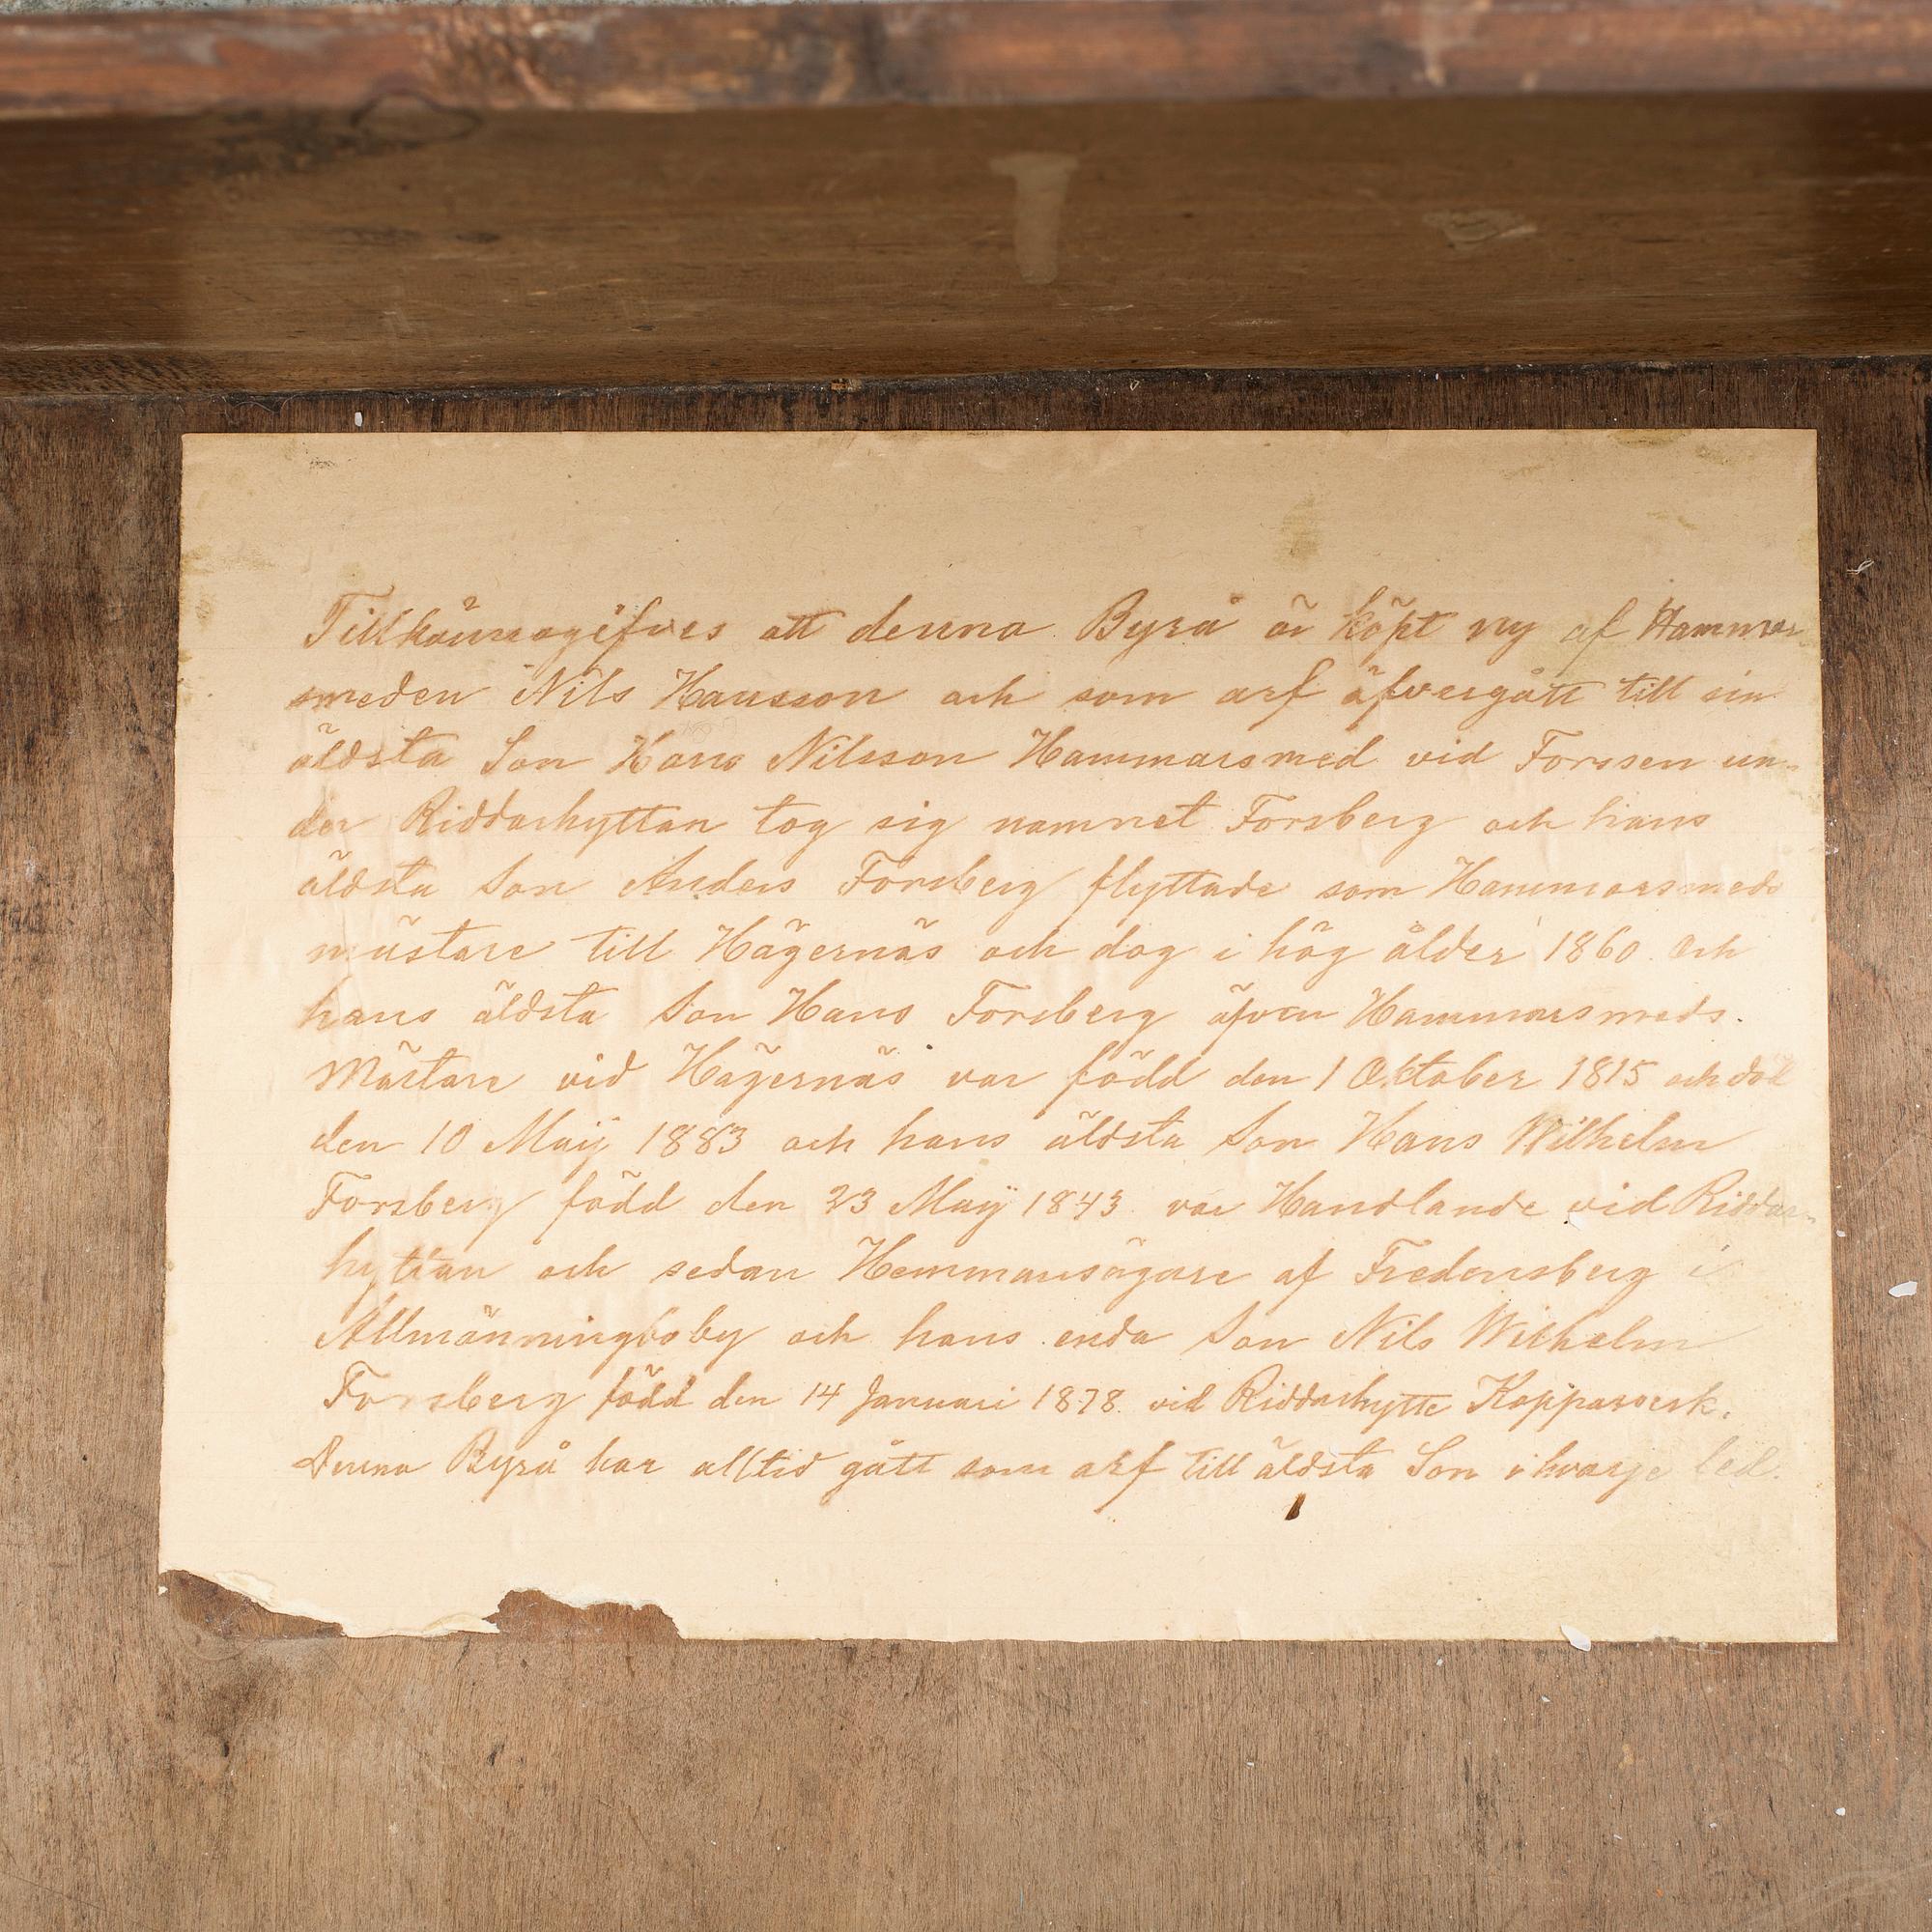 Tillkännagifves att denna Byrå är köpt ny af Hammar-
smeden Nils Hansson och som arf öfvergått till sin
äldsta Son Hans Nilsson Hammarsmed vid Forssen un-
der Riddarhyttan tog sig namnet Forsberg och hans
äldsta Son Anders Forsberg flyttade som Hammarsmeds
mästare till Hägernäs och dog i hög ålder 1860. Och
hans äldsta Son Hans Forsberg äfven Hammarsmeds.
Mästare vid Hägernäs var född den 1 Oktober 1815 och död
den 10 Maij 1883 och hans äldsta Son Hans Wilhelm
Forsberg född den 23 Maij 1843 var Handlande vid Riddar-
hyttan och sedan Hemmansägare af Fredensberg i
Allmänningbo by och hans enda Son Nils Wilhelm
Forsberg född den 14 Januari 1878 vid Riddarhytte Kopparverk.
Denna Byrå har alltid gått som arf till äldsta Son i hvarje led.